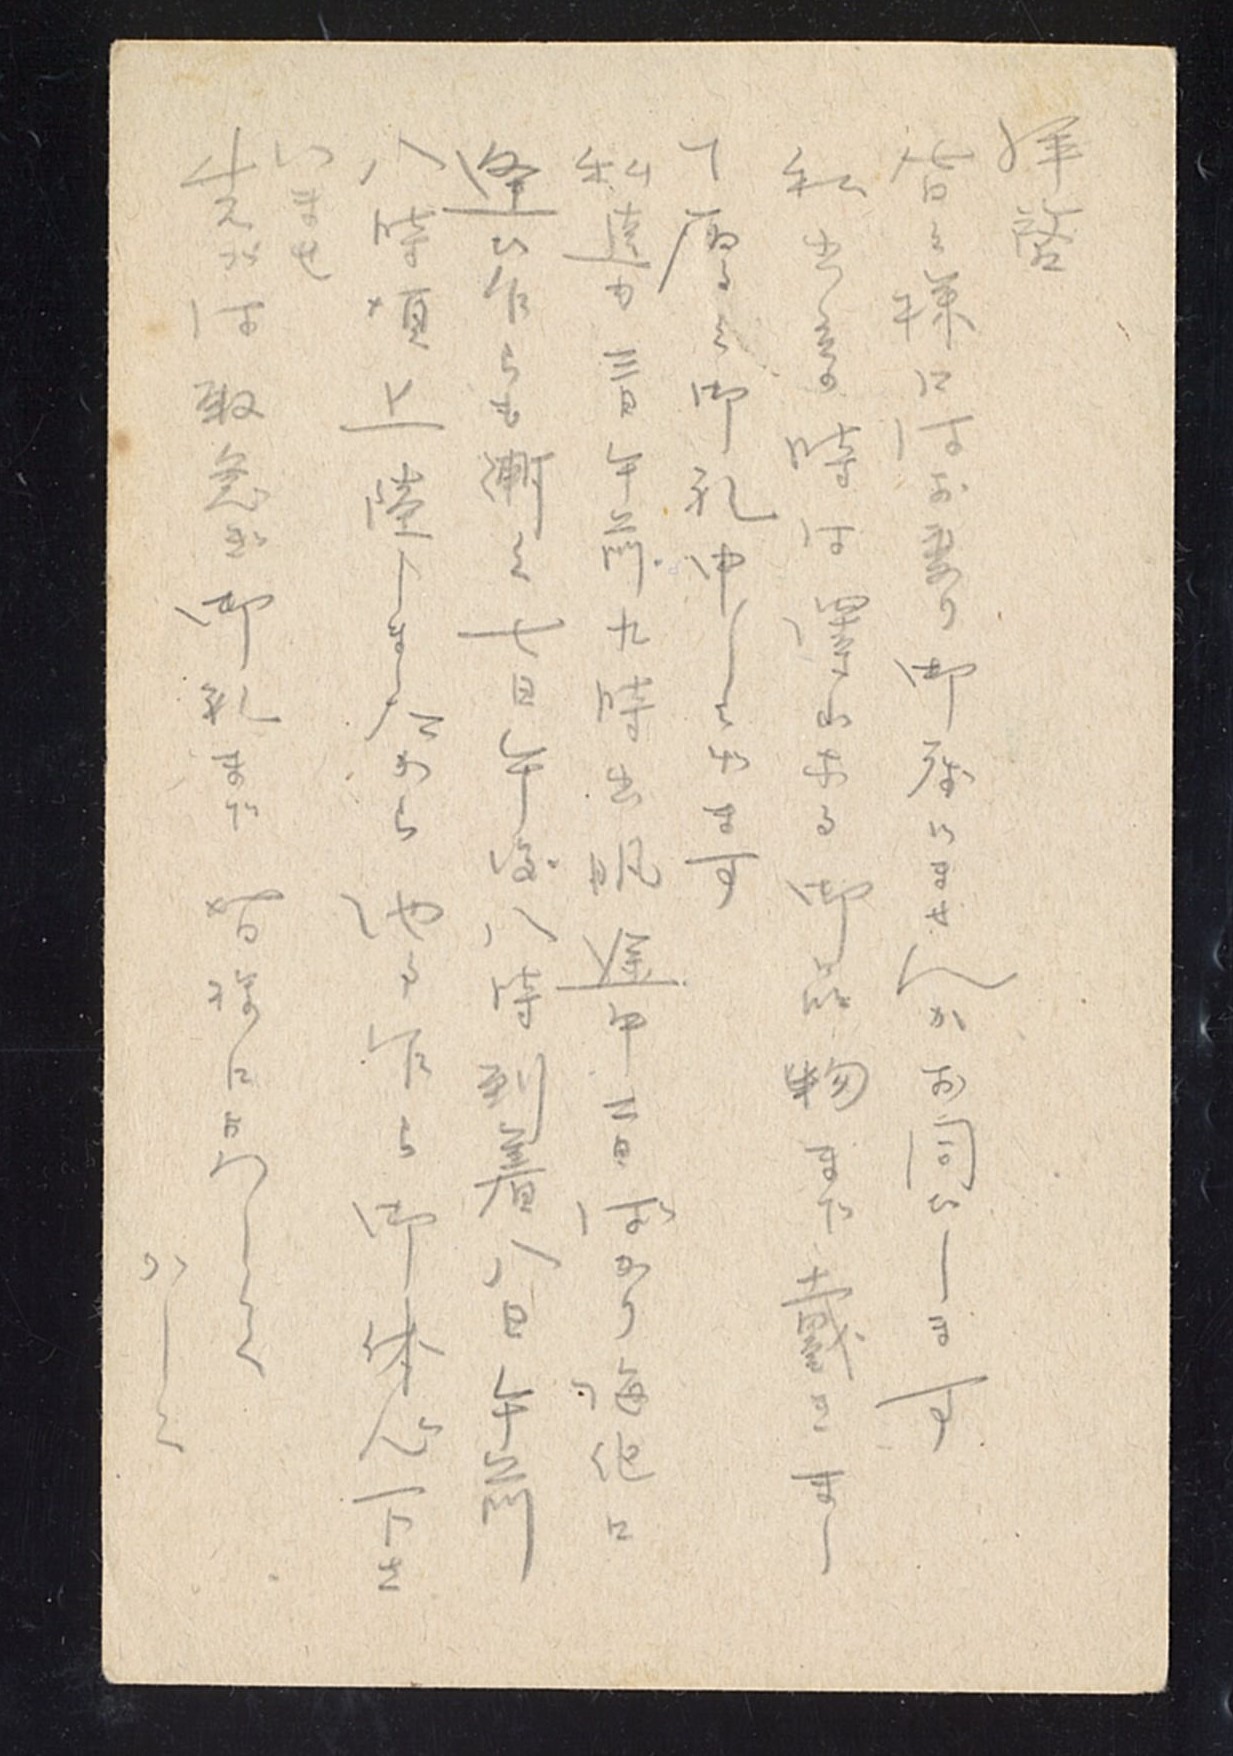 拝啓
皆々様にはお変り御座いませんかお伺ひします
私出立の時は澤山なる御品物まで戴きまし
て厚く御礼申し上げます
私達も三日午前九時出帆途中二日ばかり海他に
逢ひ乍らも漸く七日午後八時到着八日午前
八時頃上陸しましたから他る乍ら御休心下さ
いませ
先づは取急ぎ御礼まで 皆様によろしく
かしく